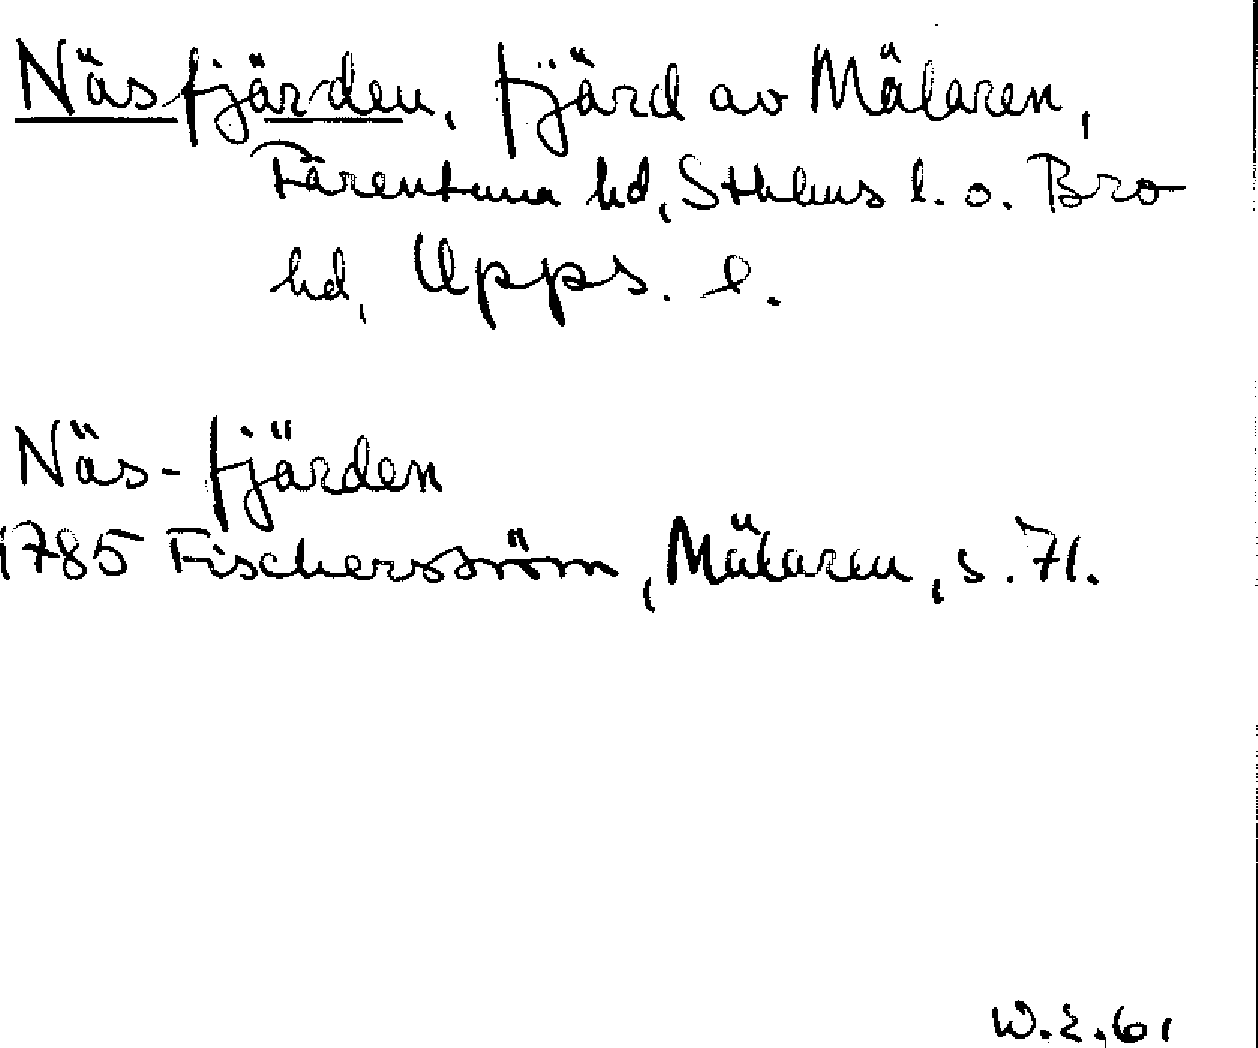 Näsfjärden, fjärd av Mälaren,
Färentuna hd, Sthlms l. o. Bro
hd, Upps. l.
Näs-fjärden
1785 Fischerström, Mälaren, s. 71.
W.E.61